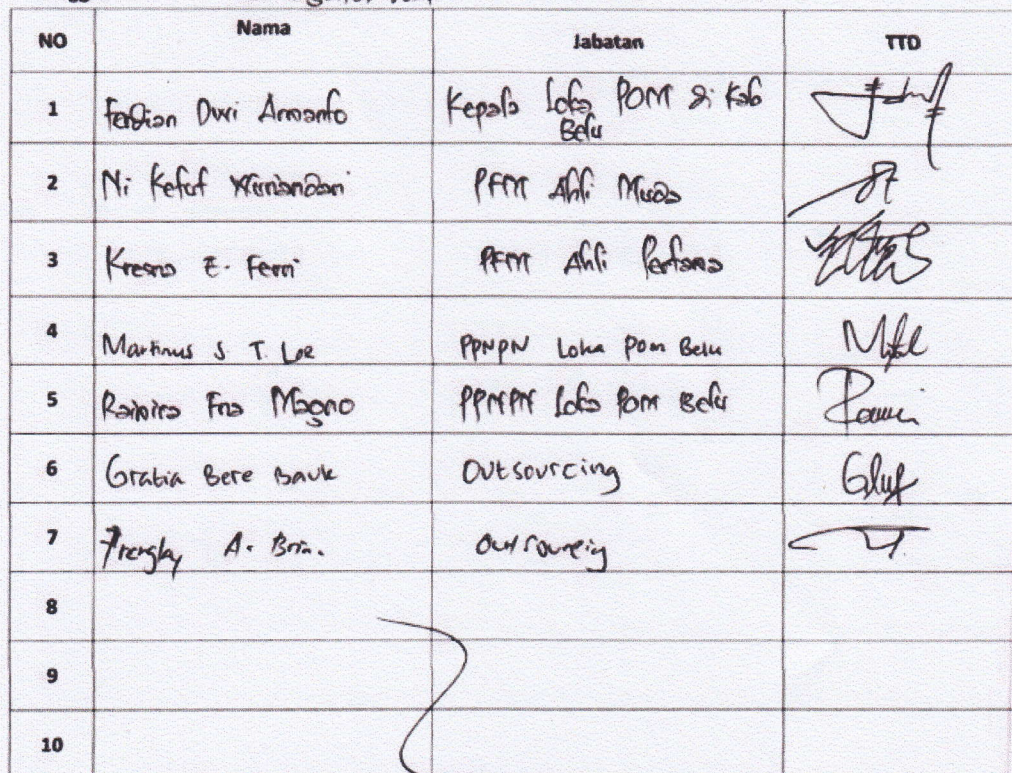 NO Nama Jabatan TTD
1 Ferdian Dwi Armanto Kepala Loka POM di Kab
Belu
2 Ni Ketut Wirnandari PFM Ahli Muda
3 Kresna E. Ferri PFM Ahli Pertama
4 Martinus S. T. Loe PPNPN Loka POM Belu
5 Rainira Fna Magno PPNPN Loka POM Belu
6 Gratia Bere Bauk Outsourcing
7 A. Bria. Outsourcing
8
9
10